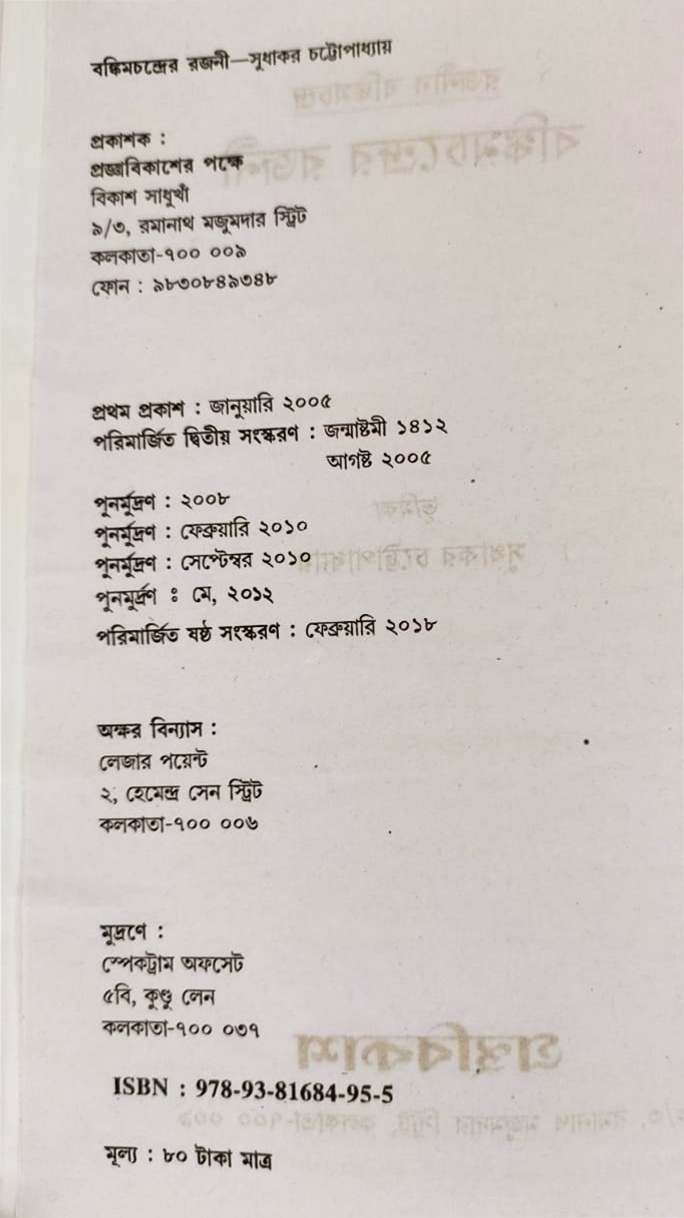 বঙ্কিমচন্দ্রের রজনী—সুধাকর চট্টোপাধ্যায়
প্রকাশক :
প্রজ্ঞাবিকাশের পক্ষে
বিকাশ সাধুখাঁ
৯/৩, রমানাথ মজুমদার স্ট্রিট
কলকাতা-৭০০ ০০৯
ফোন : ৯৮৩০৮৪৯৩৪৮
প্রথম প্রকাশ : জানুয়ারি ২০০৫
পরিমার্জিত দ্বিতীয় সংস্করণ : জন্মাষ্টমী ১৪১২
আগষ্ট ২০০৫
পুনর্মুদ্রণ : ২০০৮
পুনর্মুদ্রণ : ফেব্রুয়ারি ২০১০
পুনর্মুদ্রণ : সেপ্টেম্বর ২০১০
পুনমুর্দ্রণ : মে, ২০১২
পরিমার্জিত ষষ্ঠ সংস্করণ : ফেব্রুয়ারি ২০১৮
অক্ষর বিন্যাস :
লেজার পয়েন্ট
২, হেমেন্দ্র সেন স্ট্রিট
কলকাতা-৭০০ ০০৬
মুদ্রণে :
স্পেকট্রাম অফসেট
৫বি, কুণ্ডু লেন
কলকাতা-৭০০ ০৩৭
ISBN : 978-93-81684-95-5
মূল্য : ৮০ টাকা মাত্র